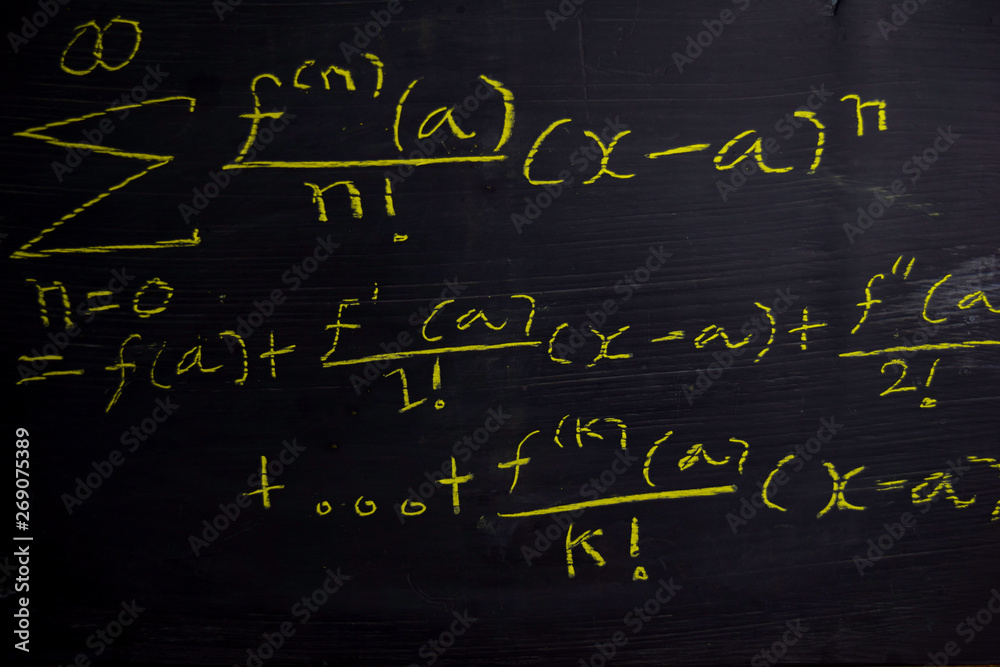 ∞
∑ f^(n)(a)/n! (x-a)^n
n=0
= f(a) + f'(a)/1! (x-a) + f''(a/2!
+ ... + f^(k)(a)/k! (x-a)
Adobe Stock | #269075389